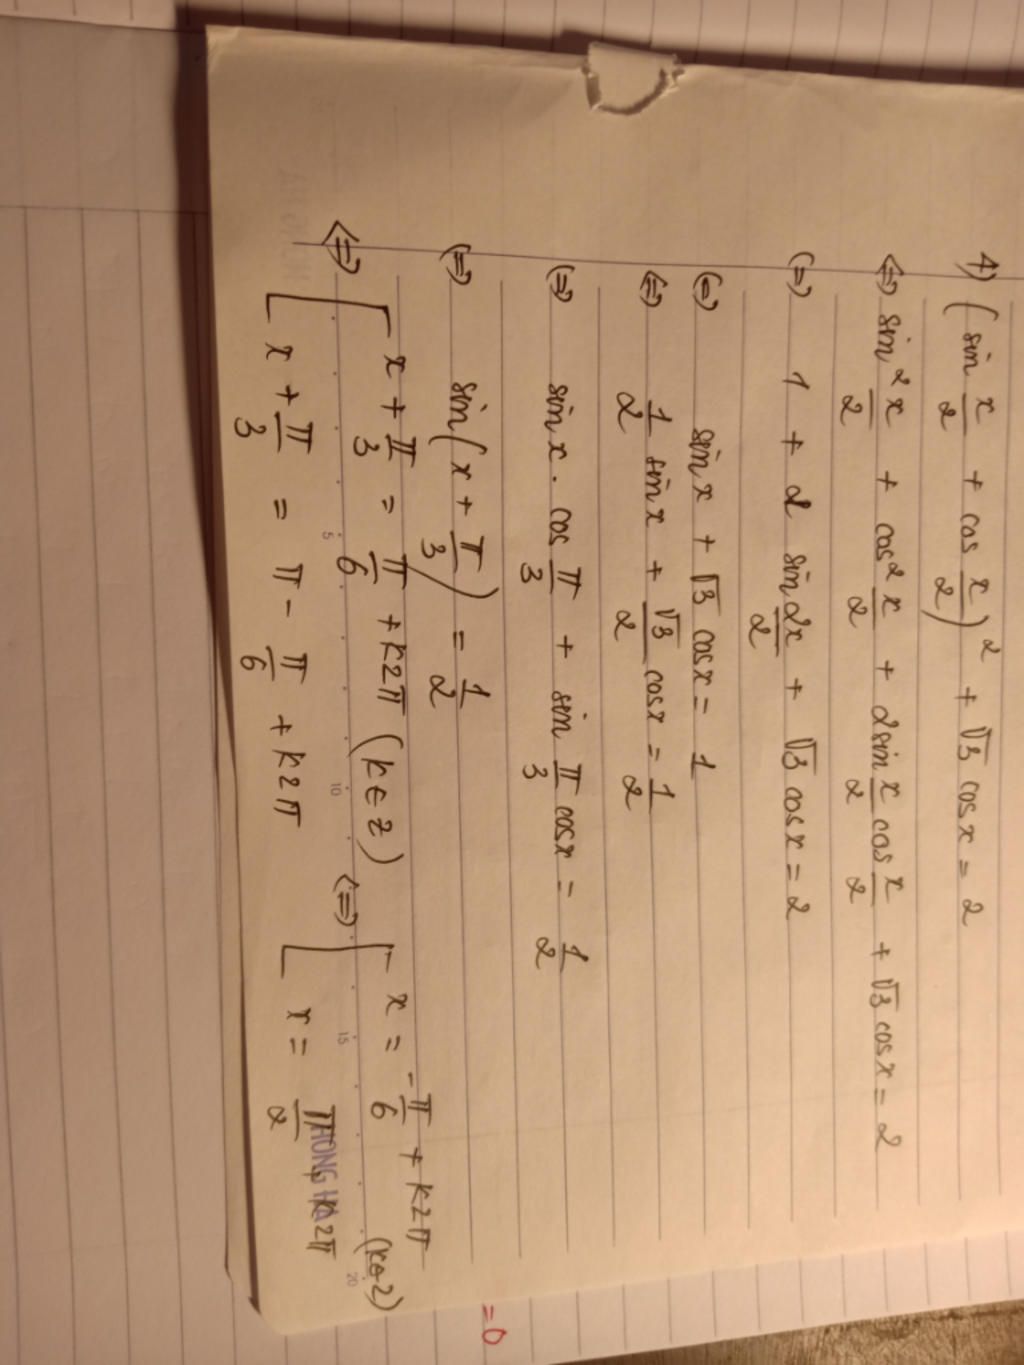 4) (sin x/2 + cos x/2)² + √3 cosx = 2
⇔ sin² x/2 + cos² x/2 + 2sin x/2 cos x/2 + √3 cosx = 2
(=) 1 + 2 sin 2x/2 + √3 cosx = 2
(=) sinx + √3 cosx = 1
⇔ 1/2 sinx + √3/2 cosx = 1/2
(=) sinx . cos π/3 + sin π/3 cosx = 1/2
(=) sin(x + π/3) = 1/2
⇔ [ x + π/3 = π/6 + k2π (k ∈ Z) ⇔ [ x = -π/6 + k2π (k∈Z)
x + π/3 = π - π/6 + k2π x = π/2 + k2π
HONG HA
5 10 15 20
= 0